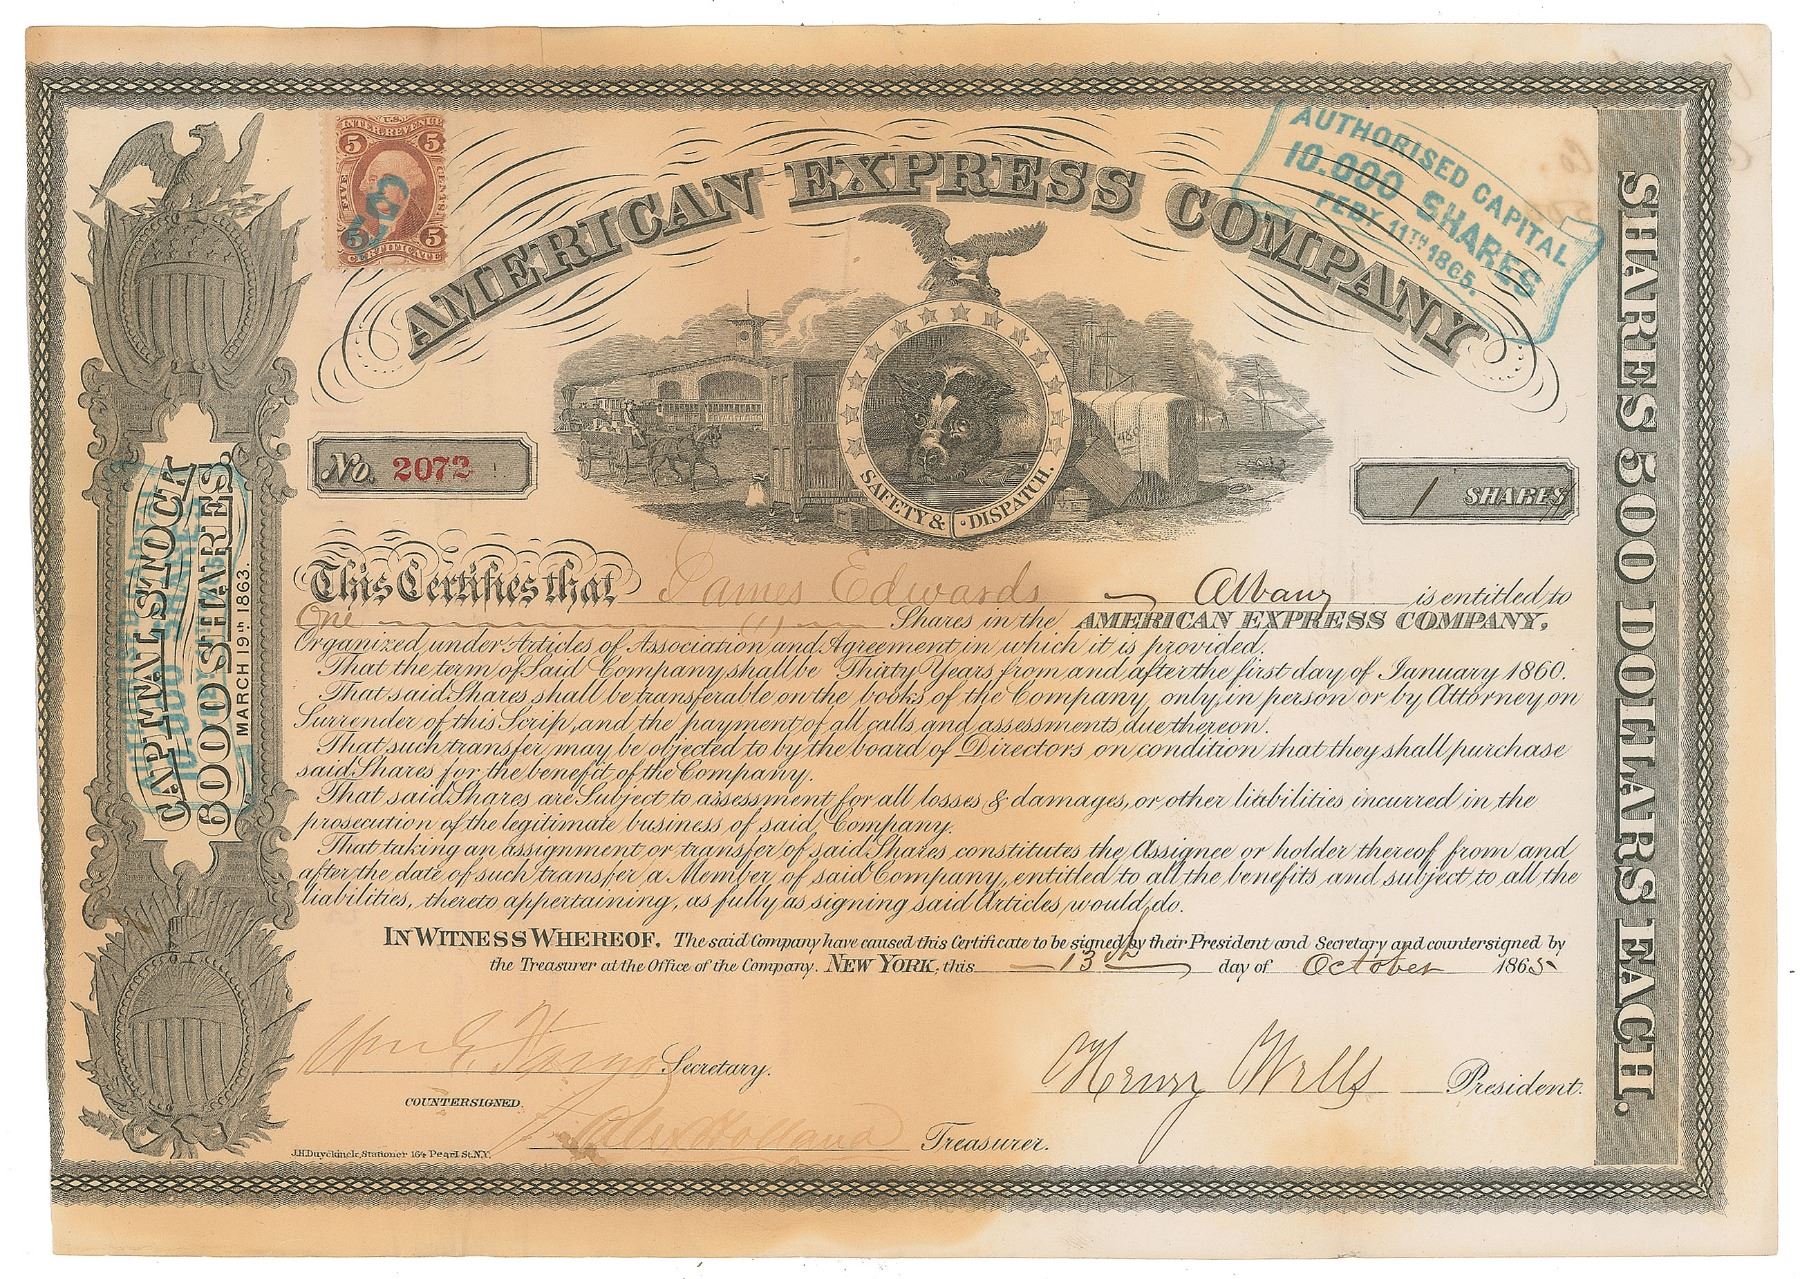 U.S.
INTER. REVENUE
5 5
FIVE CENTS
5 5
CERTIFICATE
AMERICAN EXPRESS COMPANY
AUTHORISED CAPITAL
10.000 SHARES
FEBY 11TH 1865.
SAFETY & DISPATCH.
No. 2072
1 SHARES
CAPITAL STOCK
6000 SHARES.
MARCH 19th 1863.
SHARES 500 DOLLARS EACH.
This Certifies that James Edwards Albany is entitled to
One (1) Shares in the AMERICAN EXPRESS COMPANY,
Organized under Articles of Association and Agreement in which it is provided.
That the term of Said Company shall be Thirty Years from and after the first day of January 1860.
That said Shares shall be transferable on the books of the Company, only, in person or by Attorney on
Surrender of this Scrip, and the payment of all calls and assessments due thereon.
That such transfer may be objected to by the board of Directors on condition that they shall purchase
said Shares for the benefit of the Company.
That said Shares are Subject to assessment for all losses & damages, or other liabilities incurred in the
prosecution of the legitimate business of said Company.
That taking an assignment or transfer of said Shares constitutes the Assignee or holder thereof from and
after the date of such transfer a Member of said Company, entitled to all the benefits and subject to all the
liabilities, thereto appertaining, as fully as signing said Articles would do.
IN WITNESS WHEREOF. The said Company have caused this Certificate to be signed by their President and Secretary and countersigned by
the Treasurer at the Office of the Company. NEW YORK, this 13th day of October 1865
Wm G. Fargo Secretary.
Henry Wells President.
COUNTERSIGNED.
Alex Holland Treasurer.
J.H. Duyckinck, Stationer 164 Pearl St. N.Y.